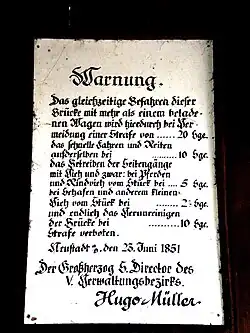 Warnung.
Das gleichzeitige Befahren dieser
Brücke mit mehr als einem belade-
nen Wagen wird hierdurch bei Ver-
meidung einer Strafe von ...... 20 Sgr.
das schnelle Fahren und Reiten
auf derselben bei .......... 10 Sgr.
das Betreiben der Seitengänge
mit Vieh und zwar: bei Pferden
und Rindvieh vom Stück bei .... 5 Sgr.
bei Schafen und anderem kleinen
Vieh vom Stück bei ...... 2½ Sgr.
und endlich das Verunreinigen
der Brücke bei .......... 10 Sgr.
Strafe verboten.
Neustadt den 23. Juni 1851
Der Großherzog S. Director des
V. Verwaltungsbezirks.
Hugo Müller.